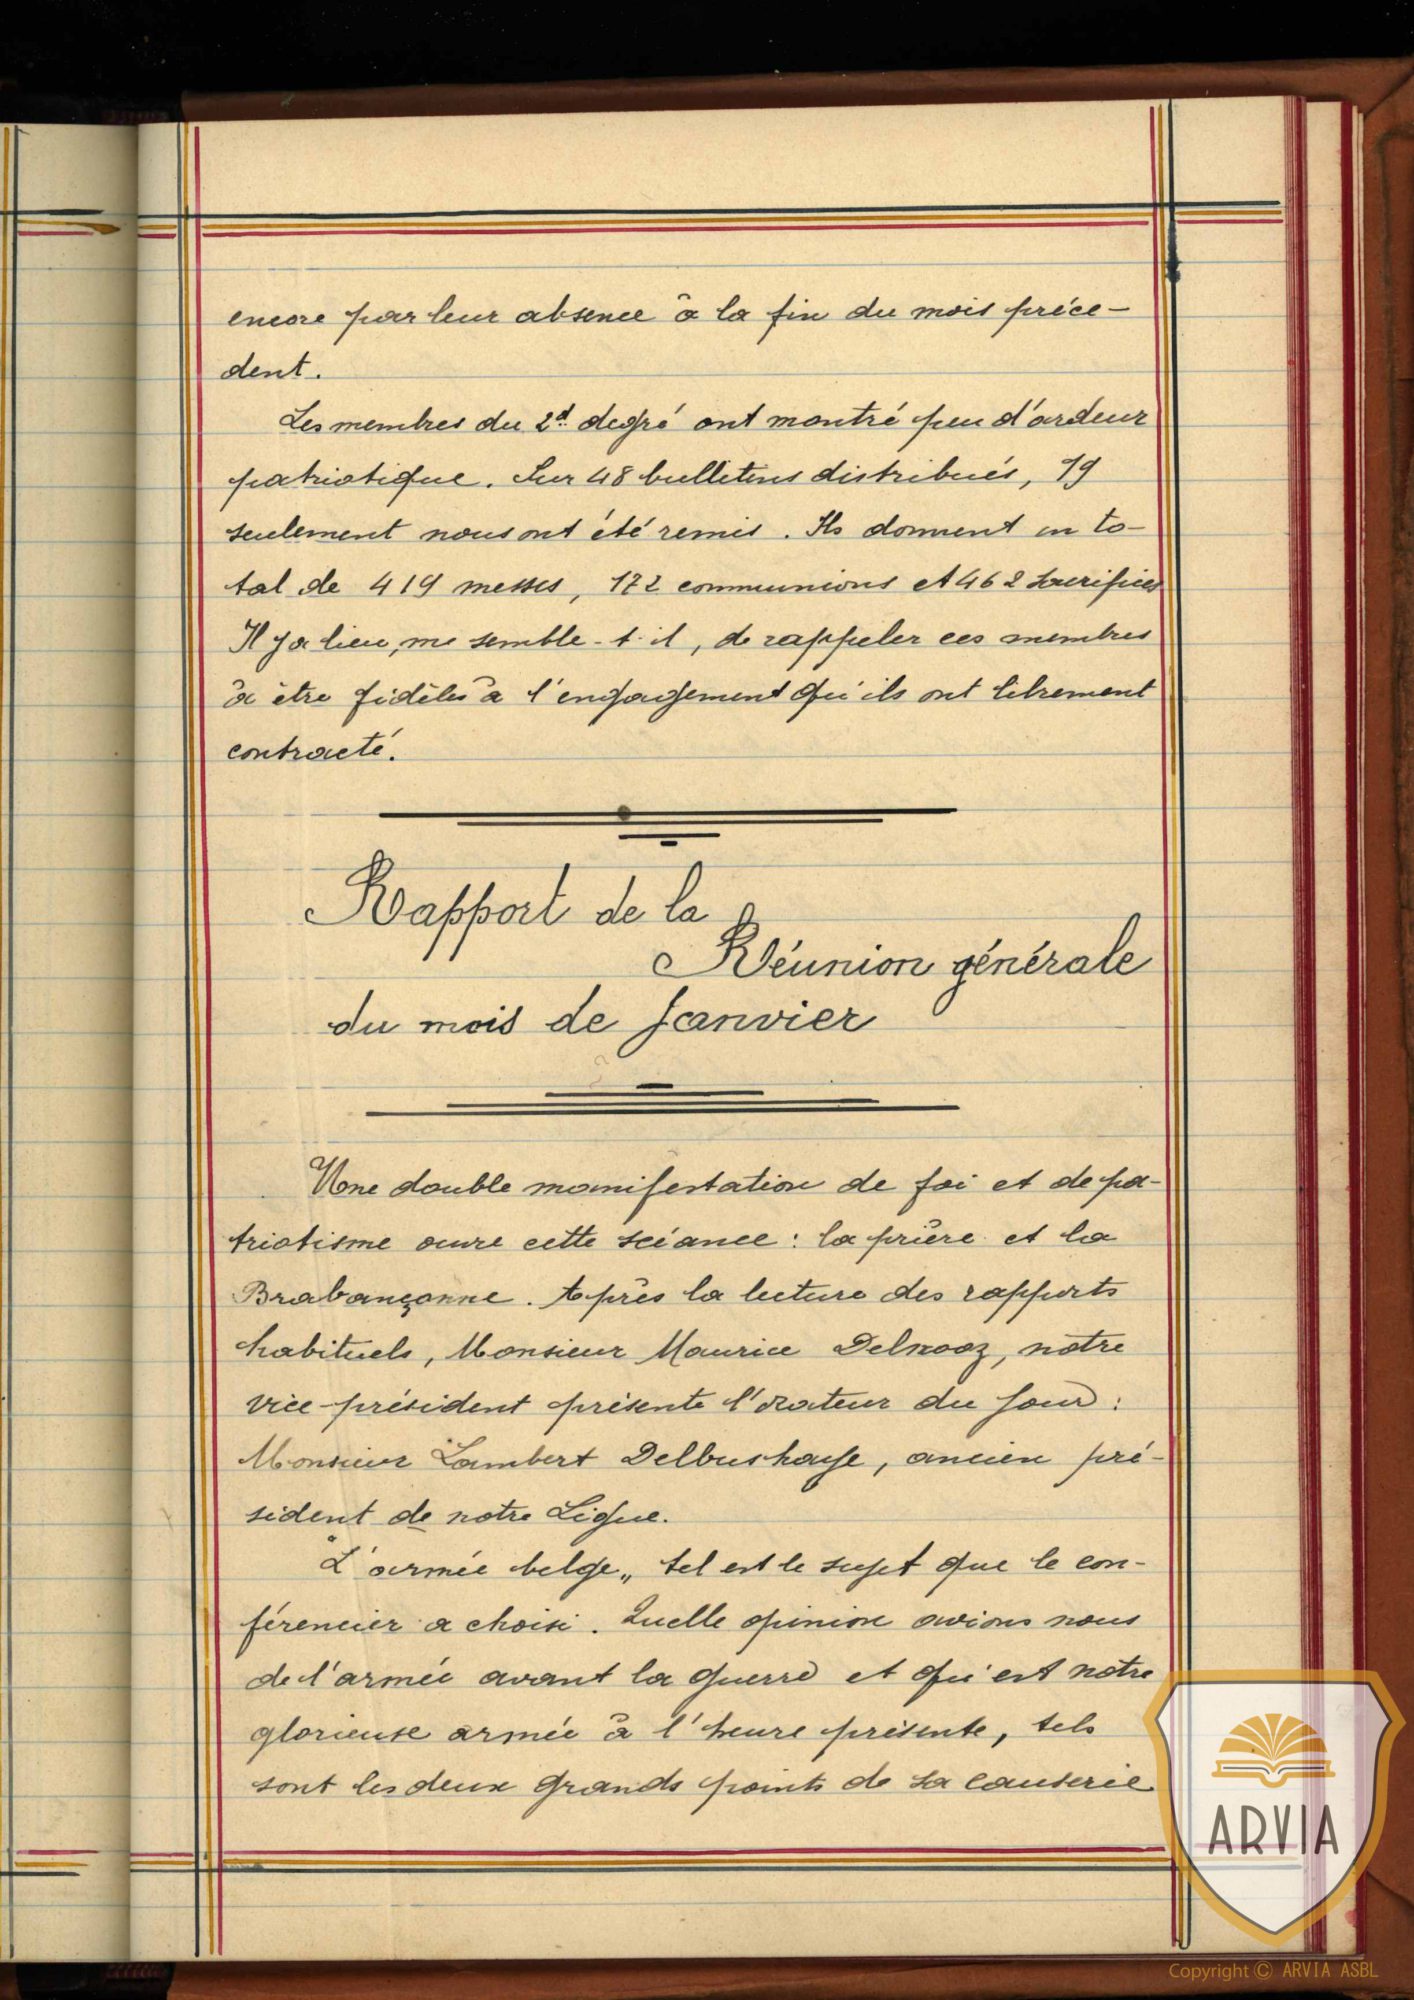 encore par leur absence à la fin du mois précé-
dent.
Les membres du 2d degré ont montré peu d'ardeur
patriotique. Sur 48 bulletins distribués, 19
seulement nous ont été remis. Ils donnent en to-
tal de 419 messes, 172 communions et 462 sacrifices
Il y a lieu, me semble-t-il, de rappeler ces membres
à être fidèles à l'engagement qu'ils ont librement
contracté.
Rapport de la
Réunion générale
du mois de Janvier
Une double manifestation de foi et de pa-
triotisme ouvre cette séance : la prière et la
Brabançonne. Après la lecture des rapports
habituels, Monsieur Maurice Delnooz, notre
vice-président présente l'orateur du jour :
Monsieur Lambert Delbushaye, ancien pré-
sident de notre Ligue.
"L'armée belge„ tel est le sujet que le con-
férencier a choisi. Quelle opinion avions nous
de l'armée avant la guerre et qu'est notre
glorieuse armée à l'heure présente, tels
sont les deux grands points de sa causerie
ARVIA
Copyright © ARVIA ASBL